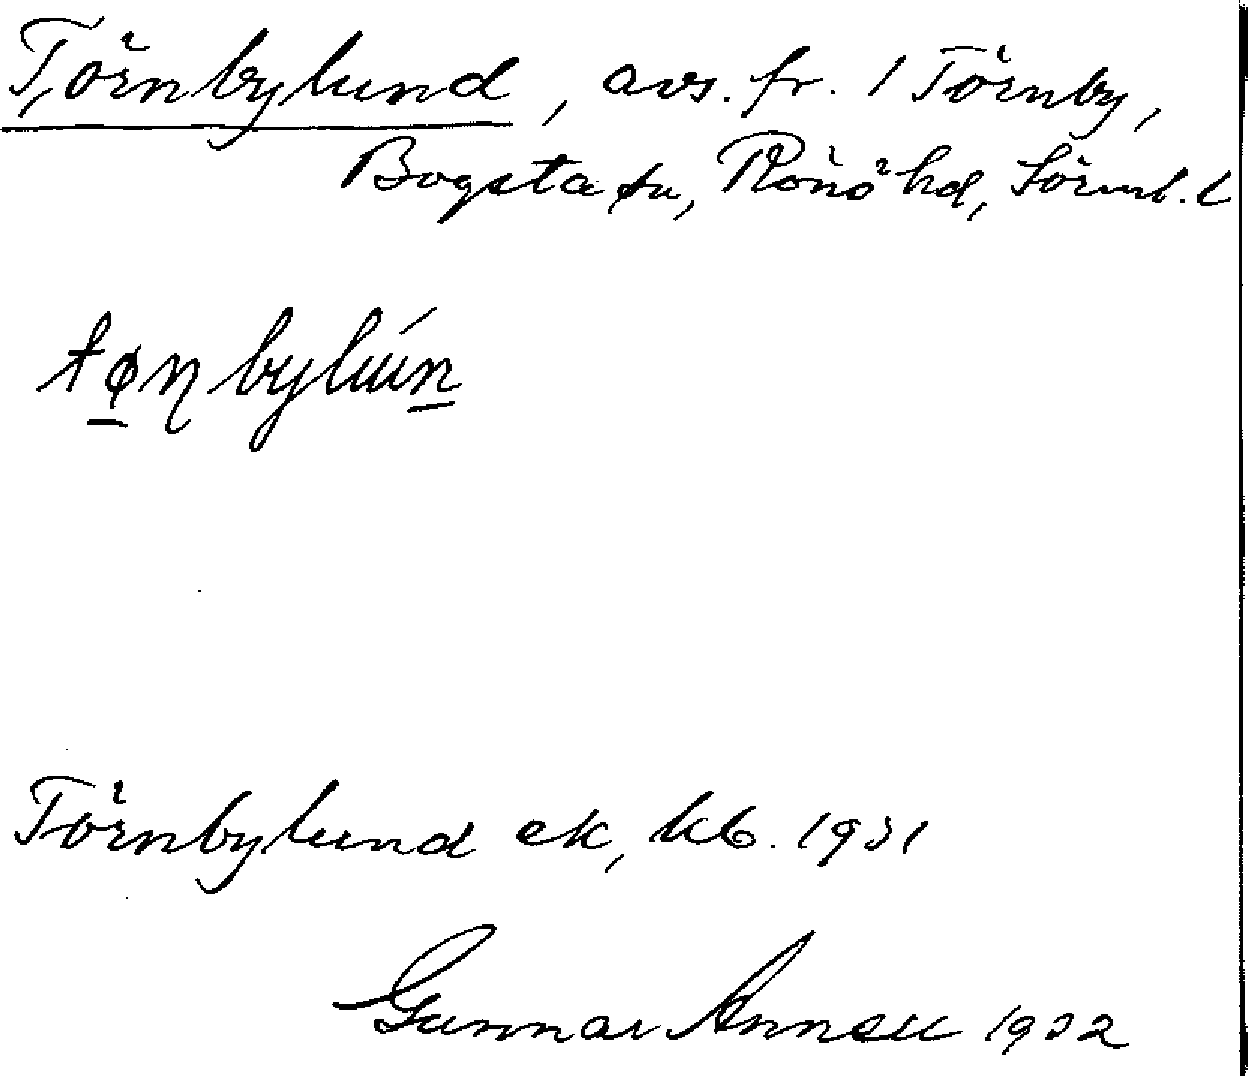 Törnbylund, avs. fr. 1 Törnby,
Bogsta sn, Rönö hd, Sörml. l
tøɳbylún
Törnbylund ek, kb. 1931
Gunnar Annell 1932